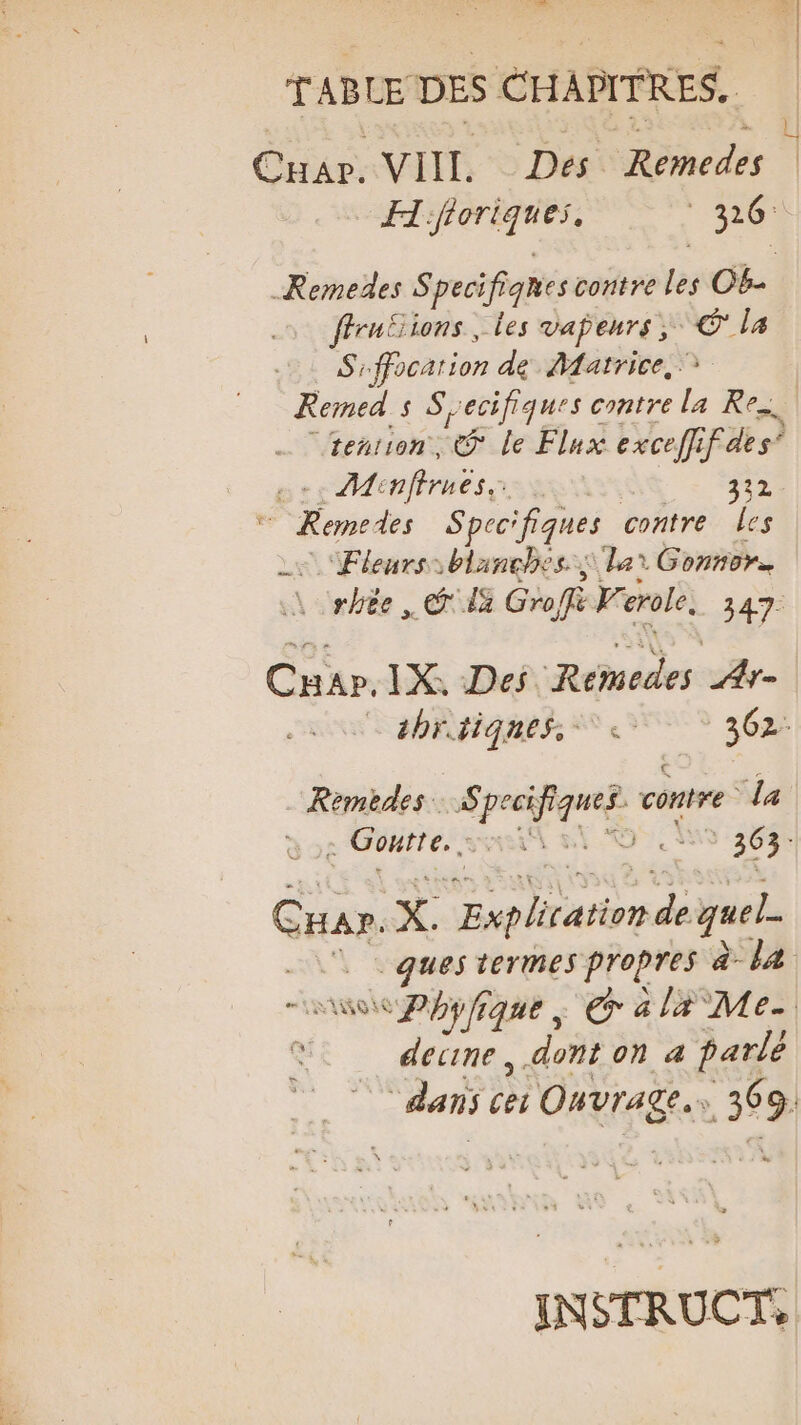 TABLE DES CHAPITRES.
CHAP. VIII. Des Remedes
Hiſtoriques. 326
Remedes Specifiques contre les Ob-
ſtructions, les vapeurs, & la
Suffocation de Matrice,
Remedes Specifiques contre la Re-
tention, & le Flux exceſſif des
Menſtrues. 332
Remedes Specifiques contre les
Fleurs blanches, la Gonnor-
rhée, & la Groſſe Verole. 347
CHAP. IX. Des Remedes Ar-
thritiques. 362
Remèdes Specifiques contre la
Goutte. 363
CHAP. X. Explication de quel-
ques termes propres à la
Phyſique, & à la Me-
decine, dont on a parlé
dans cet Ouvrage. 369
INSTRUCT.